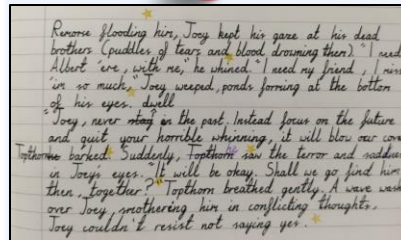 Remorse flooding him, Joey kept his gaze at his dead
brothers (puddles of tears and blood drowning them). "I need
Albert 'ere, with me," he whined. "I need my friend, I miss
'im so much," Joey weeped, ponds forming at the bottom
of his eyes. dwell
"Joey, never stay in the past. Instead focus on the future
and quit your horrible whinning, it will blow our cove
Topthorne barked. Suddenly, Topthorn saw the terror and sadness
in Joey's eyes. "It will be okay. Shall we go find him
then, together?" Topthorn breathed gently. A wave wash
over Joey, smothering him in conflicting thoughts.
Joey couldn't resist not saying yes.